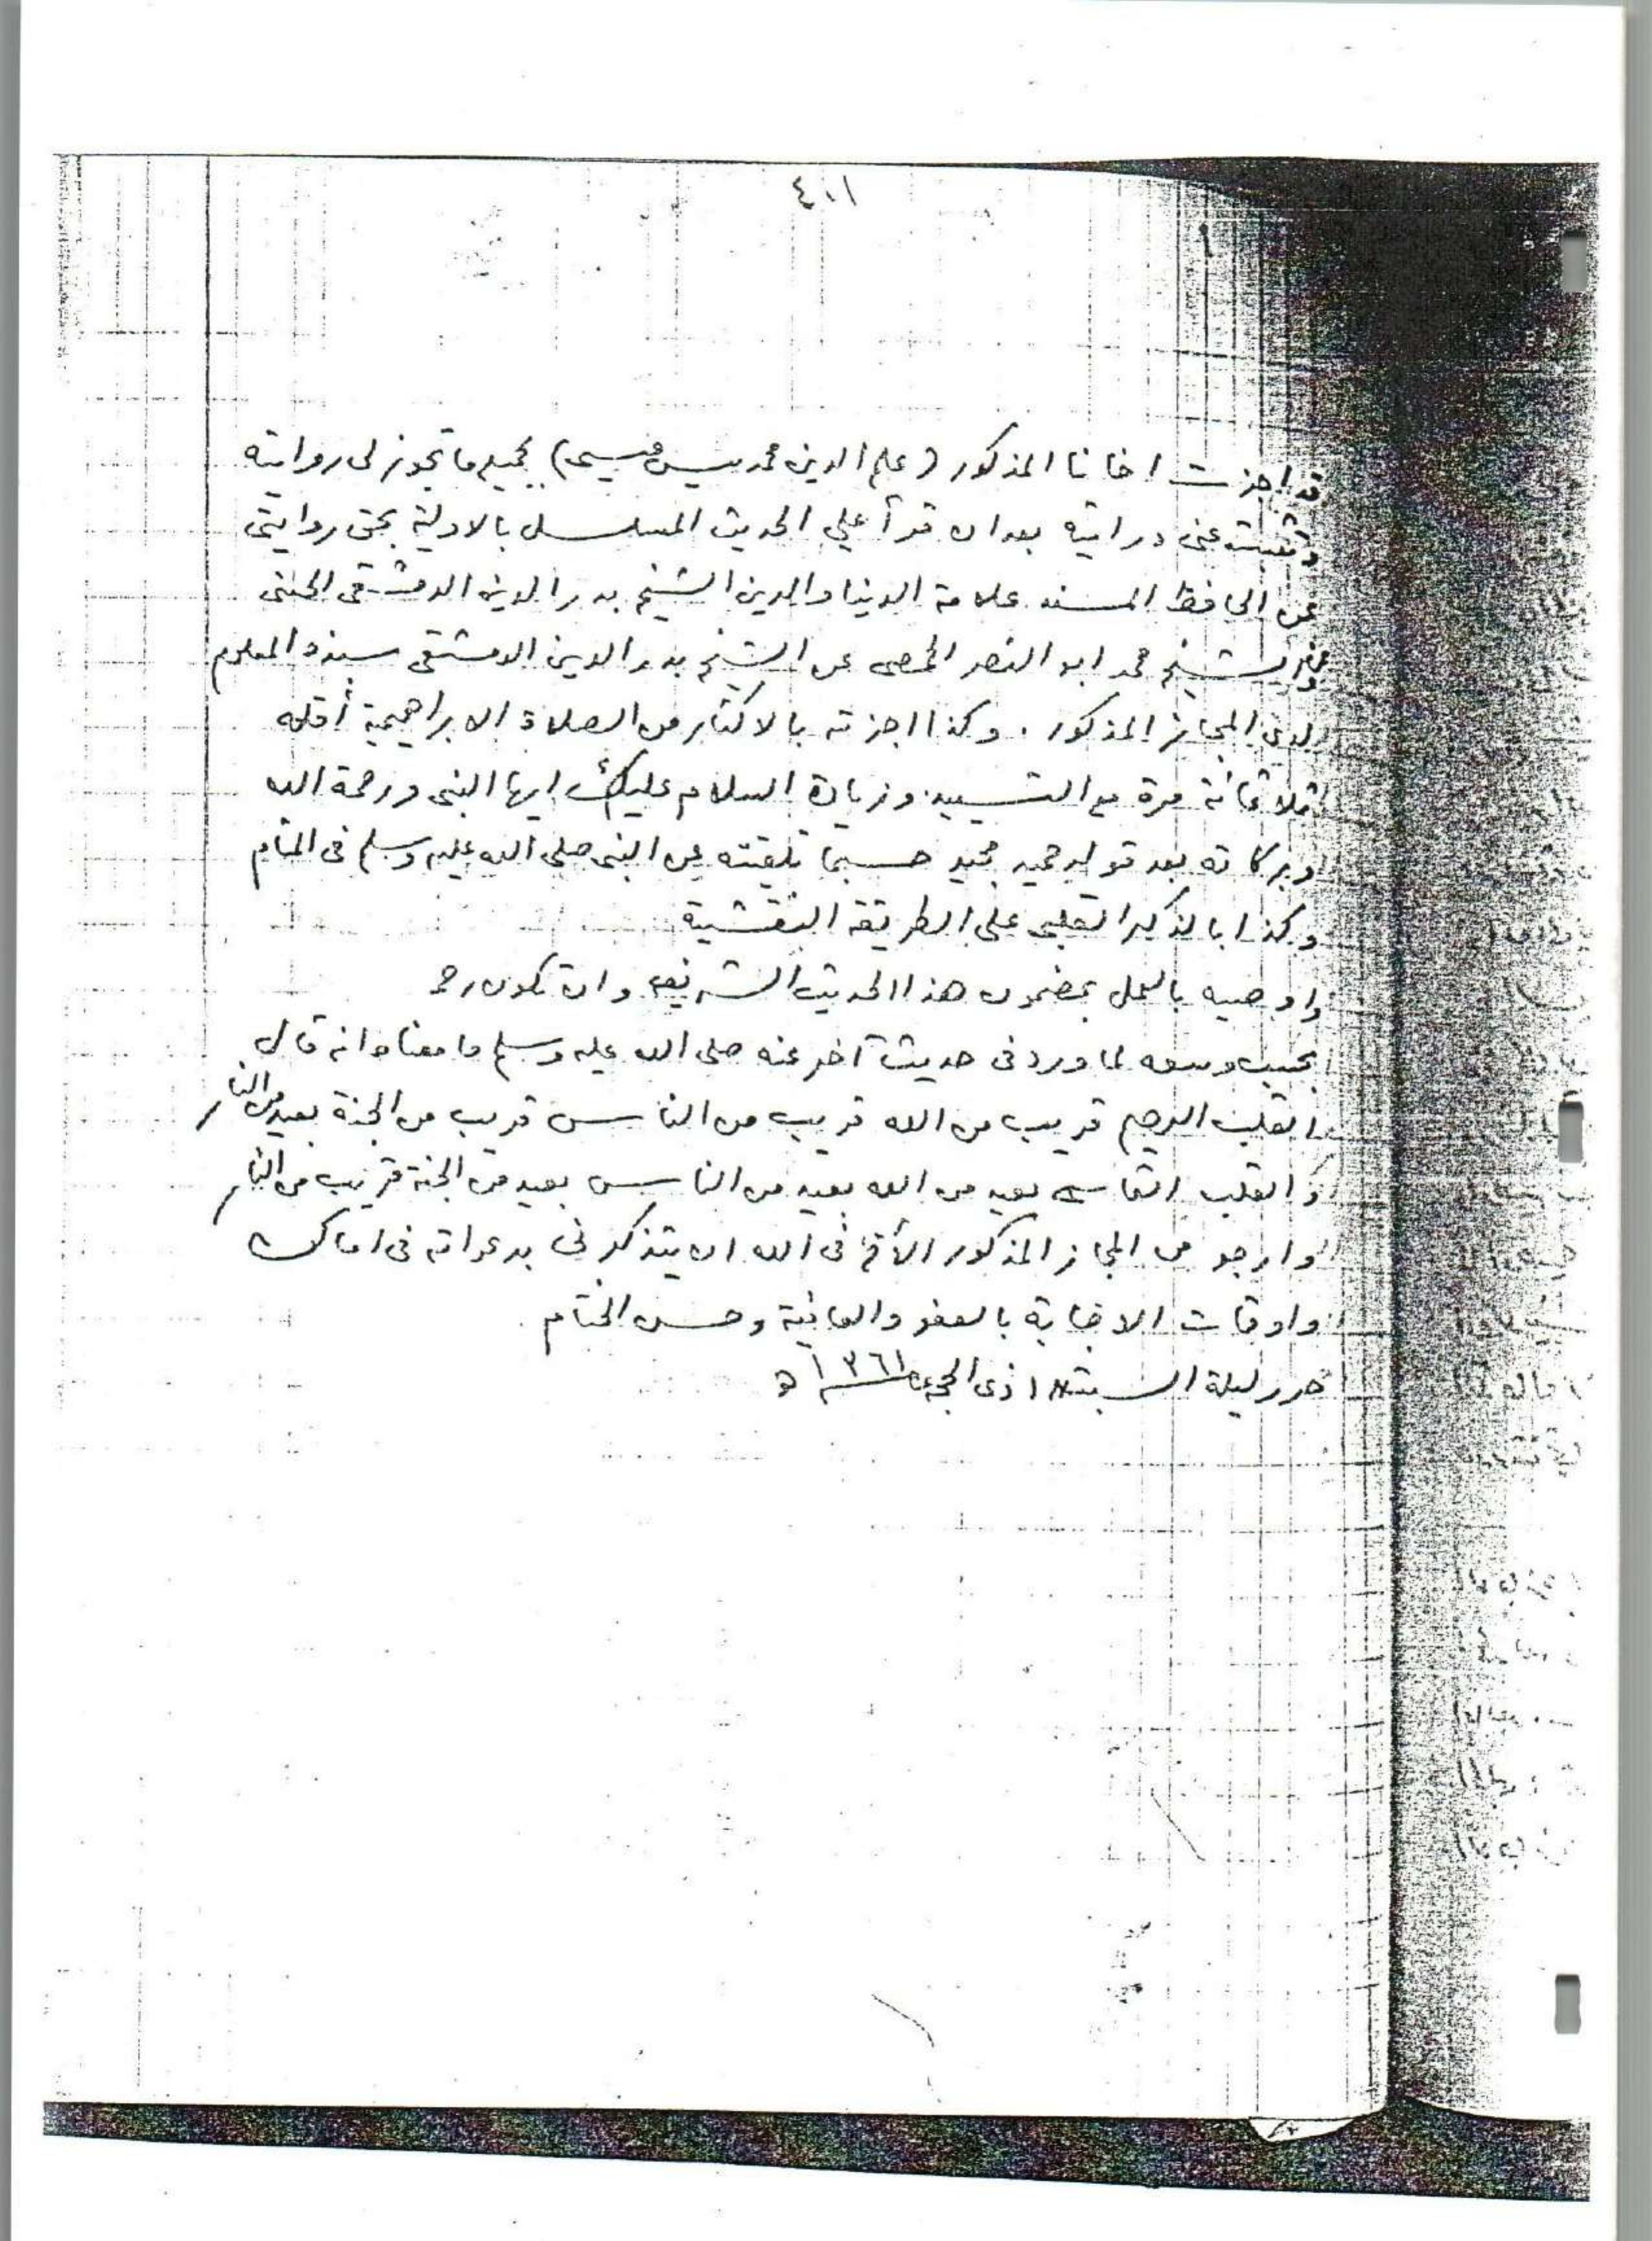 ٤٠١١
قد اجزت اخانا المذكور (علم الدين محمد يسن عيسى) بجميع ما تجوز لى روايته
وتثبت عنى درايته بعد ان قرأ علي الحديث المسلسل بالاولية بحق روايتى
عن الحافظ المسند علامة الدنيا والدين الشيخ بدر الدين الدمشقى الحسنى
الشيخ محمد ابو النصر الحمصى عن الشيخ بدر الدين الدمشقى بسنده المعلوم
لدى المجاز المذكور . وكذا اجزته بالاكثار من الصلاة الابراهيمية أقله
ثلاثمائة مرة مع التسييد وزيادة السلام عليك ايها النبى ورحمة الله
وبركاته بعد قوله حميد مجيد حسبما تلقيته عن النبى صلى الله عليه وسلم فى المنام
وكذا بالذكر القلبى على الطريقة النقشية
واوصيه بالعمل بمضمون هذا الحديث الشريف وان تكون رحم
بحسب وسعه لما ورد فى حديث آخر عنه صلى الله عليه وسلم ما معناه انه قال
القلب الرحيم قريب من الله قريب من الناس قريب من الجنة بعيد من النار
والقلب القاسى بعيد من الله بعيد من الناس بعيد من الجنة قريب من النار
وارجو من المجاز المذكور الأخ فى الله ان يتذكرنى بدعواته فى اماكن
واوقات الاجابة بالعفو والعافية وحسن الختام
حرر ليلة السبت ذى الحجة ١٣٦١ ه